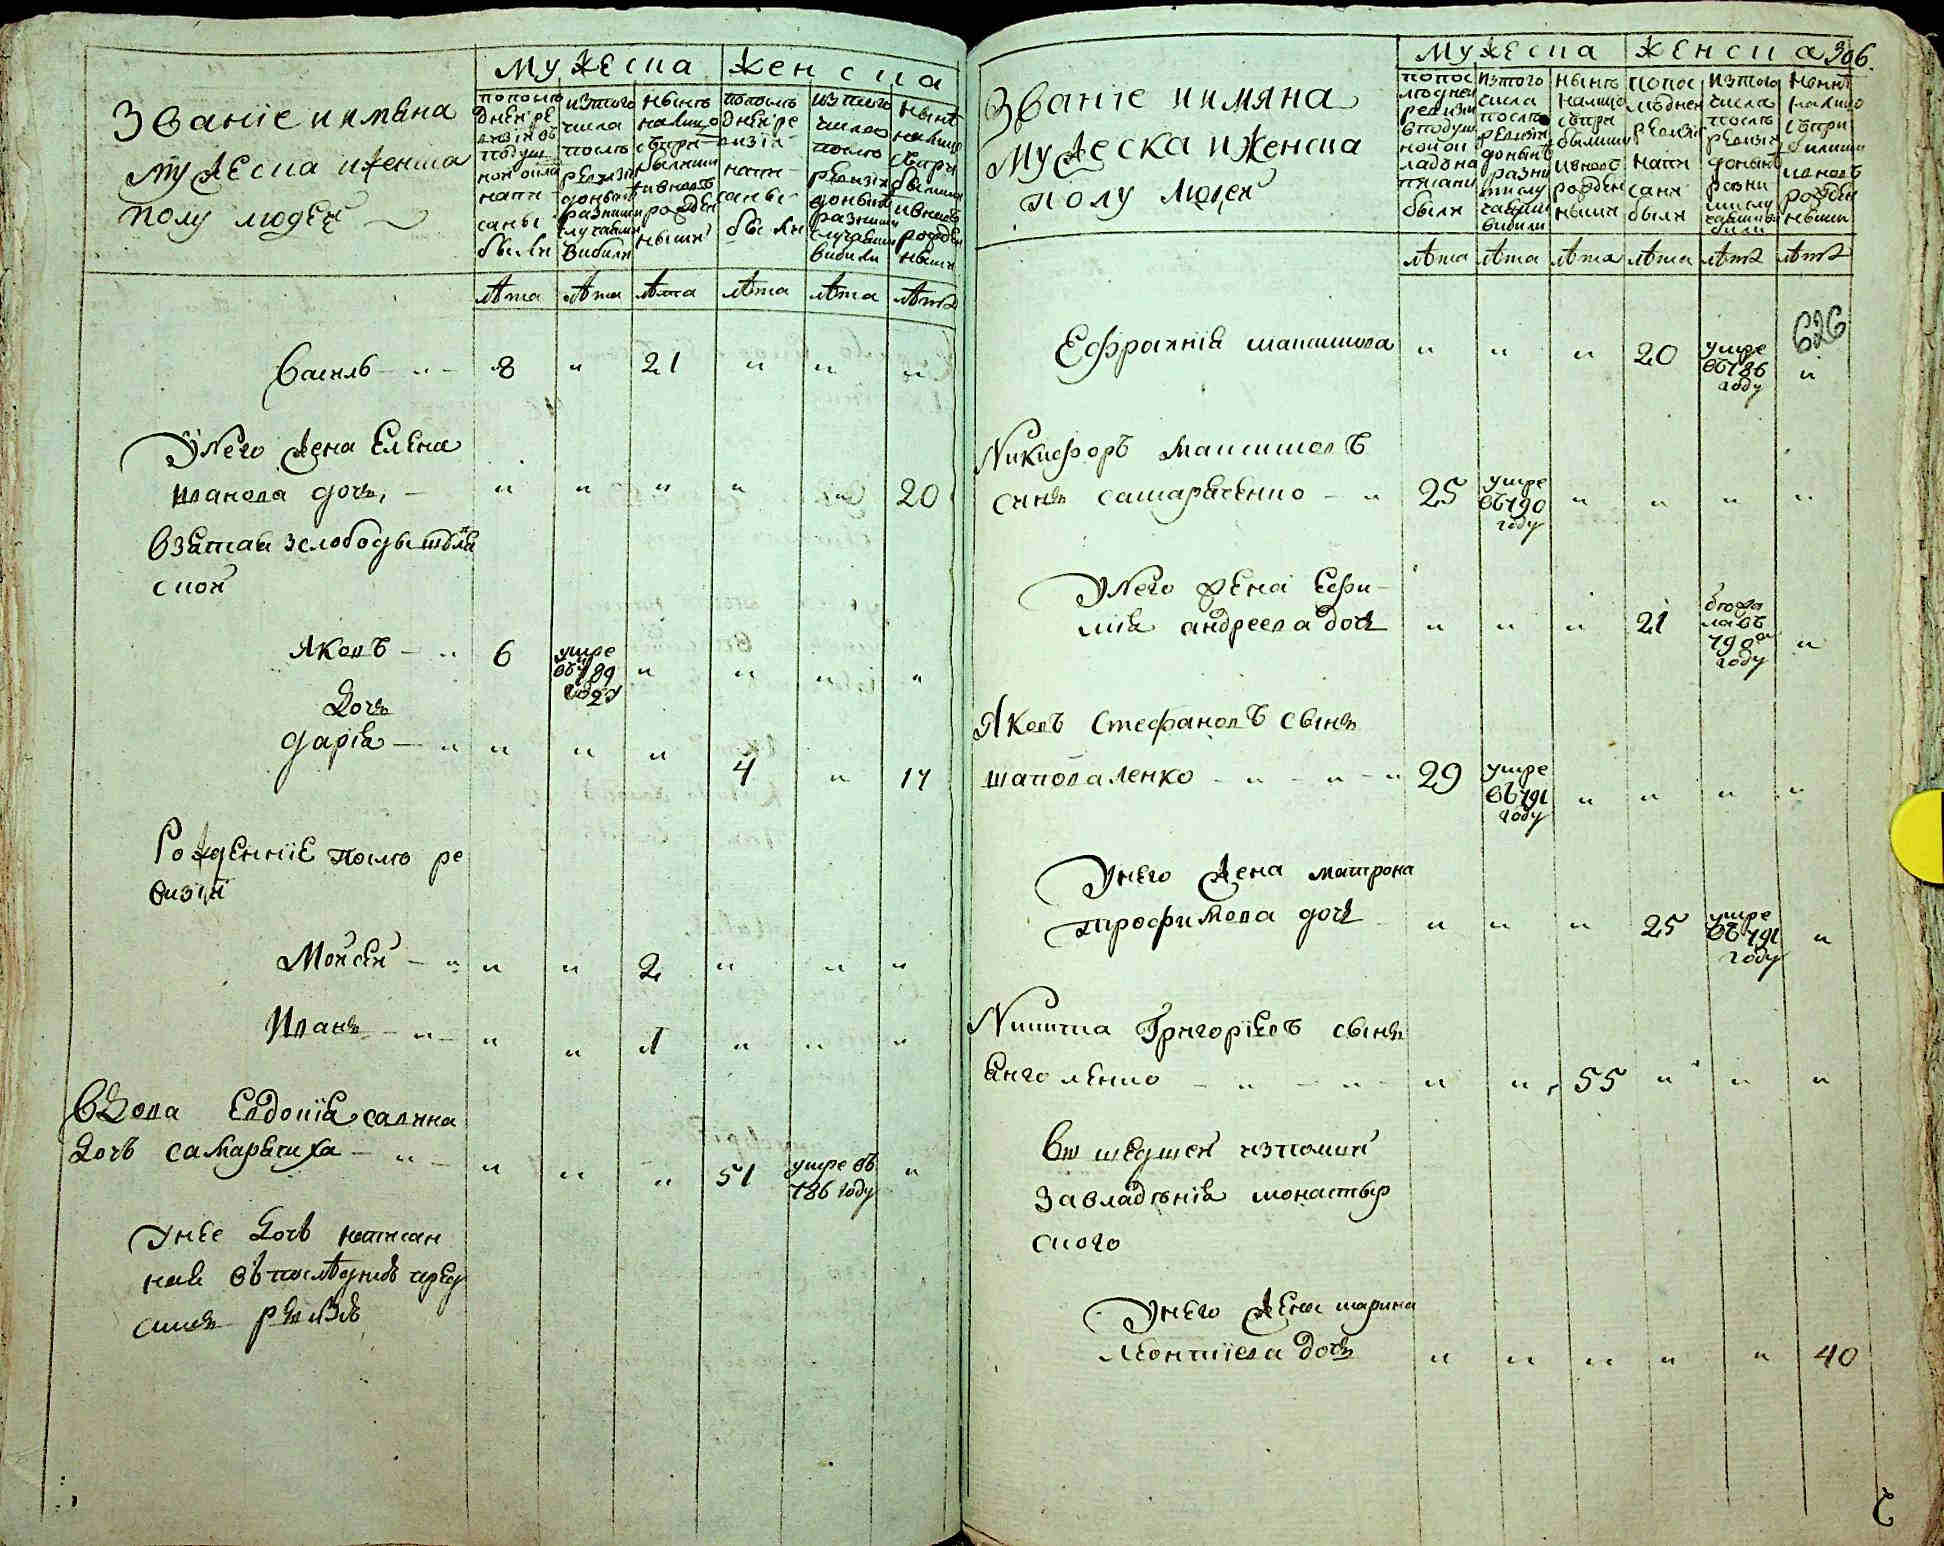 Званіе иимяна
мужеска иженска
полу людей
мужеска
женска
попослѣ
днейре
визіи въ
подуш
ной окла
напи
саны
были
изтого
числа
послѣ
ревизіи
донынѣ
разными
случаями
выбыли
нынѣ
налицо
съпри
былыми
ивновь
рожден
ными
попослѣ
днейре
визіи
напи
саны
были
изтого
числа
послѣ
ревизіи
донынѣ
разными
случаями
выбыли
нынѣ
налицо
съпри
былыми
ивновь
рожден
ными
лѣта лѣта лѣта лѣта лѣта лѣта
Василь - " - 8 " 21 " " "
Унего жена Елена
иванова дочь, - " " " " " 20
взятая зслободы
ской
Яковъ - " 6 умре " " " "
въ789
году
Дочь
дарія - " " " " 4 " 17
Рожденніе послѣ ре
визіи
Мойсей - " " " 2 " " "
Иванъ - " - " " 1 " " "
Вдова Евдокія савина
дочь самарская - " - " " " 51 умре въ "
786 году
унее дочь написан
ная въпослѣдней пред
симъ ревизіи
Званіе иимяна
Мужеска иЖенска
полу людей
мужеска
женска
306.
попос
лѣдней
ревизіи
вподуш
номъ
окладѣ
писаны
были
изтого
числа
послѣ
ревизіи
донынѣ
разни
ми слу
чаями
выбыли
нынѣ
налицо
съпри
былыми
ивновь
рожден
ными
попос
лѣдней
ревизіи
напи
саны
были
изтого
числа
послѣ
ревизіи
донынѣ
разни
ми слу
чаями
были
нынѣ
налицо
съпри
былыми
ивновь
рожден
ными
лѣта лѣта лѣта лѣта лѣта лѣта
626
Ефросинія максимова " " " 20 умре "
въ786
году
Никифоръ Максимовъ
синъ самарскенко - " 25 умре " " " "
въ790
году
Унего жена Ефи-
мія андреева дочь " " " 21 бежа "
ла въ
790м
году
Яковъ Стефановъ сынъ
шаповаленко - " - " - " 29 умре " " " "
въ791
году
Унего жена матрона
трофимова дочь - " " " 25 умре "
въ791
году
Никита Григоріевъ сынъ
- " - " - " " 55 " " "
вшедшей изполши
завладѣнія монастыр
ского
Унего жена марина
леонтіева дочь " " " " " 40